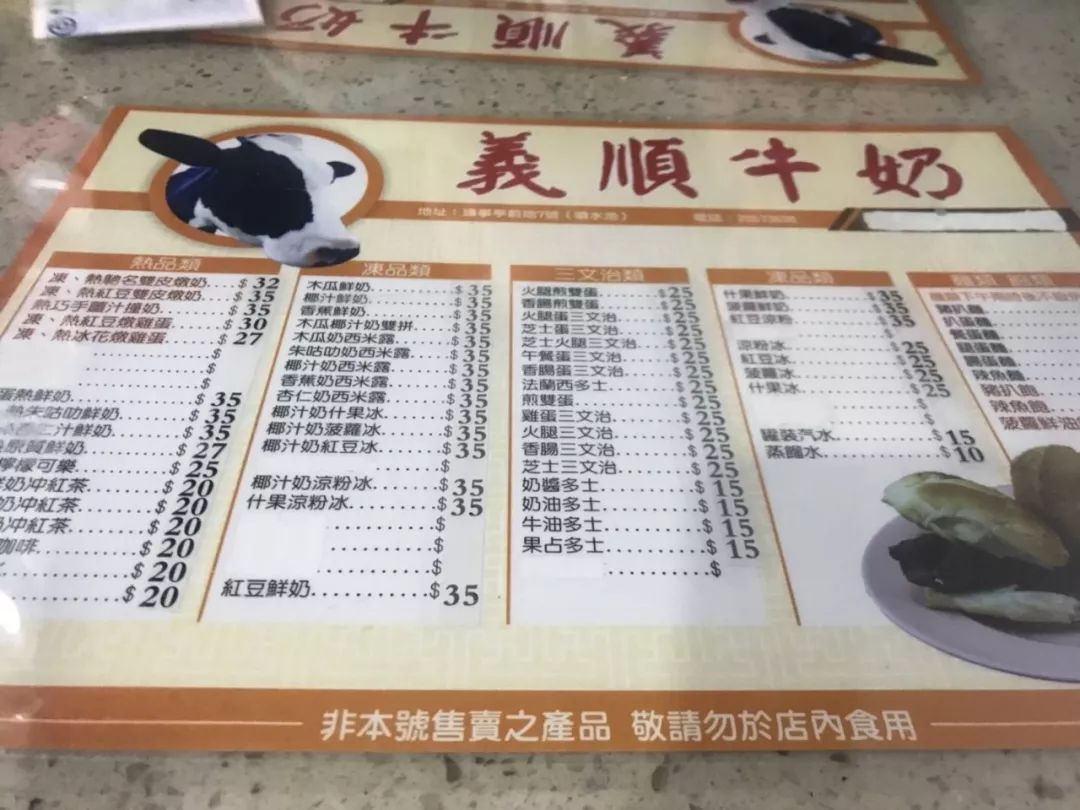 義順牛奶
義順牛奶
地址：議事亭前地7號（噴水池）
電話：
熱品類
凍、熱馳名雙皮燉奶 $32
凍、熱紅豆雙皮燉奶 $35
熱巧手薑汁撞奶 $35
凍、熱紅豆燉雞蛋 $30
凍、熱冰花燉雞蛋 $27
$
$
蛋熱鮮奶 $35
熱朱咕叻鮮奶 $35
汁鮮奶 $35
原質鮮奶 $27
檸檬可樂 $25
奶冲紅茶 $20
奶冲紅茶 $20
冲紅茶 $20
咖啡 $20
$20
$20
凍品類
木瓜鮮奶 $35
椰汁鮮奶 $35
香蕉鮮奶 $35
木瓜椰汁奶雙拼 $35
木瓜奶西米露 $35
朱咕叻奶西米露 $35
椰汁奶西米露 $35
香蕉奶西米露 $35
杏仁奶西米露 $35
椰汁奶什果冰 $35
椰汁奶菠蘿冰 $35
椰汁奶紅豆冰 $35
$
椰汁奶涼粉冰 $35
什果涼粉冰 $35
$
$
$
紅豆鮮奶 $35
三文治類
火腿煎雙蛋 $25
香腸煎雙蛋 $25
火腿蛋三文治 $25
芝士蛋三文治 $25
芝士火腿三文治 $25
午餐蛋三文治 $25
香腸蛋三文治 $25
法蘭西多士 $25
煎雙蛋 $25
雞蛋三文治 $25
火腿三文治 $25
香腸三文治 $25
芝士三文治 $25
奶醬多士 $15
奶油多士 $15
牛油多士 $15
果占多士 $15
$
凍品類
什果鮮奶 $35
菠蘿鮮奶 $35
紅豆涼粉 $35
涼粉冰 $25
紅豆冰 $25
菠蘿冰 $25
什果冰 $25
$
罐裝汽水 $15
蒸餾水 $10
豬扒麵
扒蛋麵
辣魚麵
豬扒飽
辣魚飽
菠蘿鮮油
非本號售賣之產品 敬請勿於店內食用